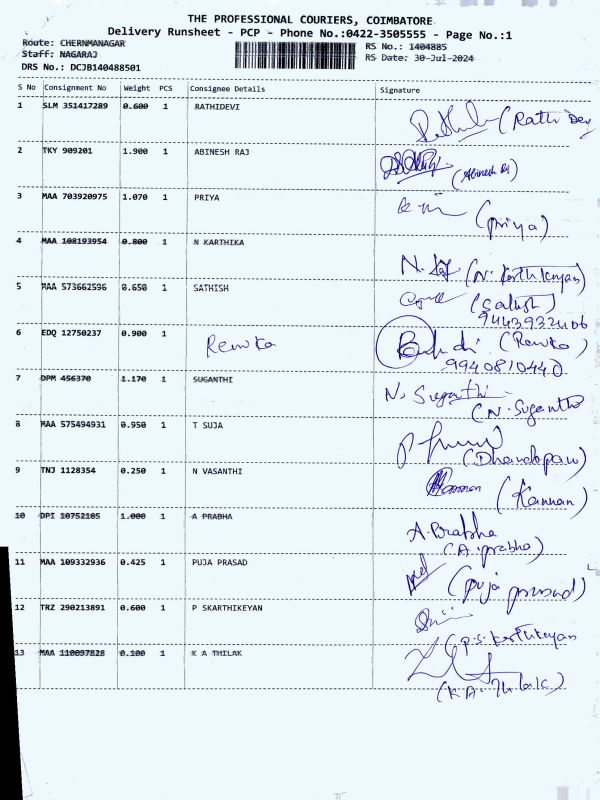 THE PROFESSIONAL COURIERS, COIMBATORE
Delivery Runsheet - PCP - Phone No.:0422-3505555 - Page No.:1
Route: CHERNMANAGAR RS No.: 1404885
Staff: NAGARAJ RS Date: 30-Jul-2024
DRS No.: DCJB140488501
S No Consignment No Weight PCS Consignee Details Signature
1 SLM 351417289 0.600 1 RATHIDEVI (Rathi Dev
2 TKY 909201 1.900 1 ABINESH RAJ (Abinesh
3 MAA 703920975 1.070 1 PRIYA (priya)
4 MAA 108193954 0.800 1 N KARTHIKA N. (N. Karthikeyan)
5 MAA 573662596 0.650 1 SATHISH (Satish)
9443932406
6 EDQ 12750237 0.900 1 Renuka (Renuka)
9940810440
7 DPM 456370 1.170 1 SUGANTHI N. Suganthi
(N. Sugantha
8 MAA 575494931 0.950 1 T SUJA
(Dhandapani)
9 TNJ 1128354 0.250 1 N VASANTHI (Kannan)
10 DPI 10752185 1.000 1 A PRABHA A. Prabha
(A. prabha)
11 MAA 109332936 0.425 1 PUJA PRASAD (puja prasad)
12 TRZ 290213891 0.600 1 P SKARTHIKEYAN
(P.S. Karthikeyan
13 MAA 110097828 0.100 1 K A THILAK
(K.A. Thilak)